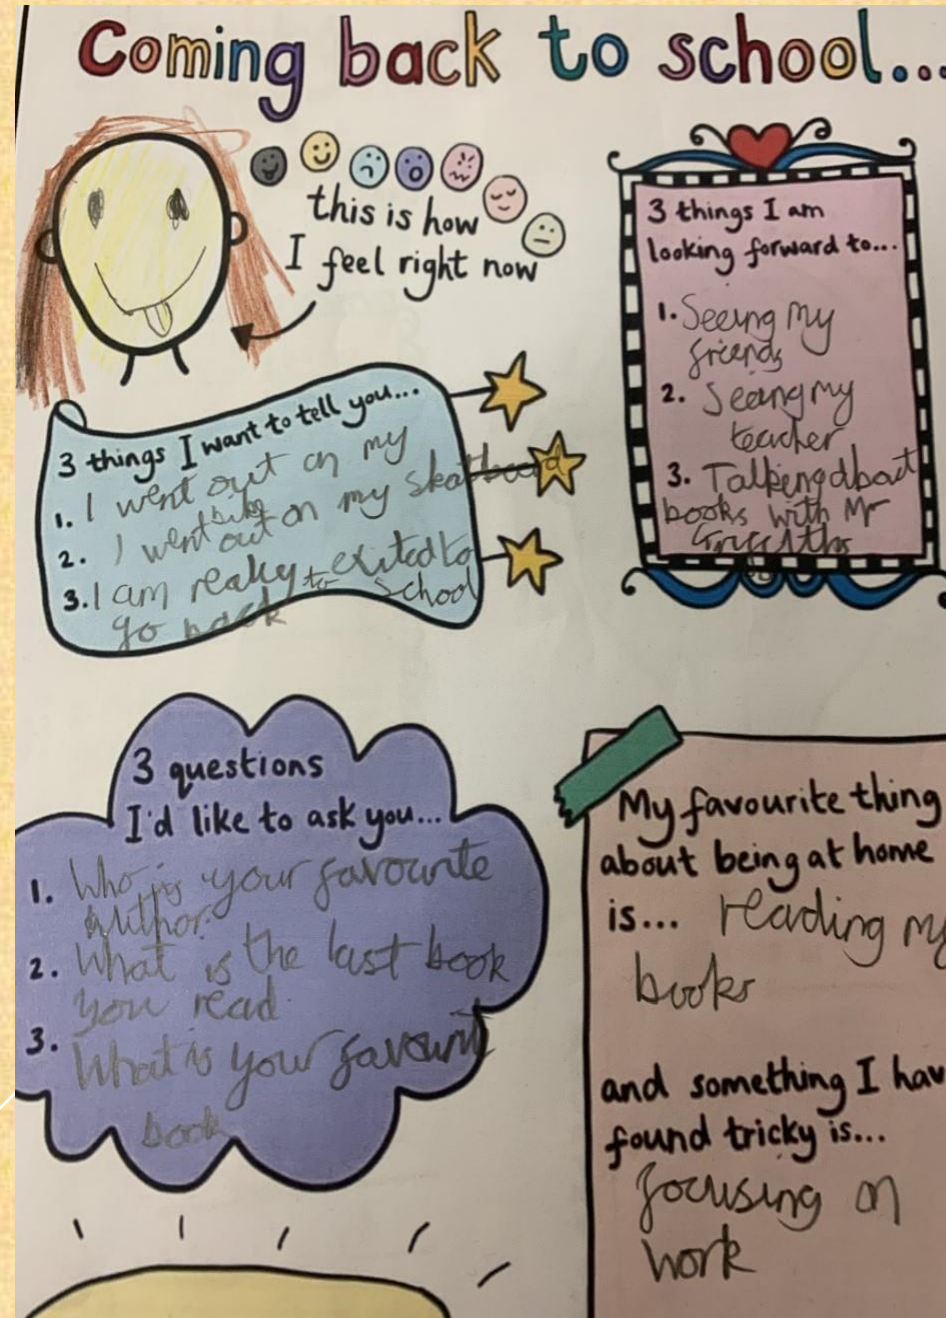 Coming back to school...
this is how
I feel right now
3 things I am
looking forward to...
1. Seeing my
friends
2. Seeing my
teacher
3. Talking about
books with Mr
Griffiths
3 things I want to tell you...
1. I went out on my
bike
2. I went out on my skatboard
3. I am really to exited to
go back School
3 questions
I'd like to ask you...
1. Who is your favourite
Author.
2. What is the last book
you read.
3. What is your favourit
book
My favourite thing
about being at home
is... reading my
books
and something I hav
found tricky is...
focusing on
work